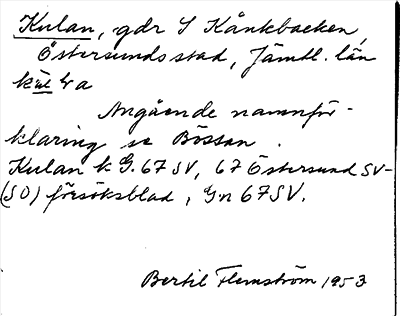 Kulan, gdr S Kånkbacken,
Östersunds stad, Jämtl. län
Angående namnför-
klaring se Bössan.
Kulan k G. 67 SV, 67 Östersund SV-
(SO) försöksblad, Gn 67 SV.
Bertil Flemström 1953